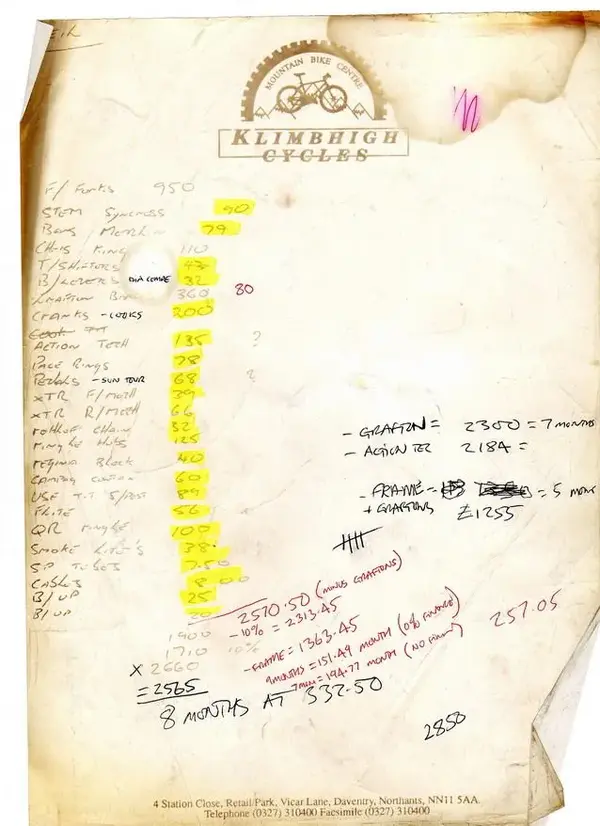 MOUNTAIN BIKE CENTRE
KLIMBHIGH
CYCLES
F/ FORKS 950
STEM SYNCROSS 90
BARS MERLIN 79
CHRIS KING 110
T/SHIFTERS 43
B/LEVERS DIA COMPE 32
GRAFTON 360 80
CRANKS - COOKS 200
ACTION TECH 135 ?
PACE RINGS 78
PEDALS - SUN TOUR 68 ?
XTR F/MECH 39
XTR R/MECH 66
CHAIN 32
RINGLE HUBS 125
REGINA BLOCK 40
60
USE T.T S/POST 89
FLITE 56
QR RINGLE 100
SMOKE LITE'S 38
S.P TUBES 7.50
CABLES 8.00
B/UP 25
B/UP 20
- GRAFTON = 2300 = 7 MONTHS
- ACTION TEC 2184 =
- FRAME = = 5 MONS
+ GRAFTONS £1255
2570.50 (MINUS GRAFTONS)
- 10% = 2313.45
- FRAME = 1363.45
9 MONTHS = 151.49 MONTH (0% FINANCE)
7 MON = 194.77 MONTH (NO FINAN)
257.05
1900
1710 10%
X 2660
= 2565
8 MONTHS AT 332.50
2850
4 Station Close, Retail Park, Vicar Lane, Daventry, Northants, NN11 5AA.
Telephone (0327) 310400 Facsimile (0327) 310400